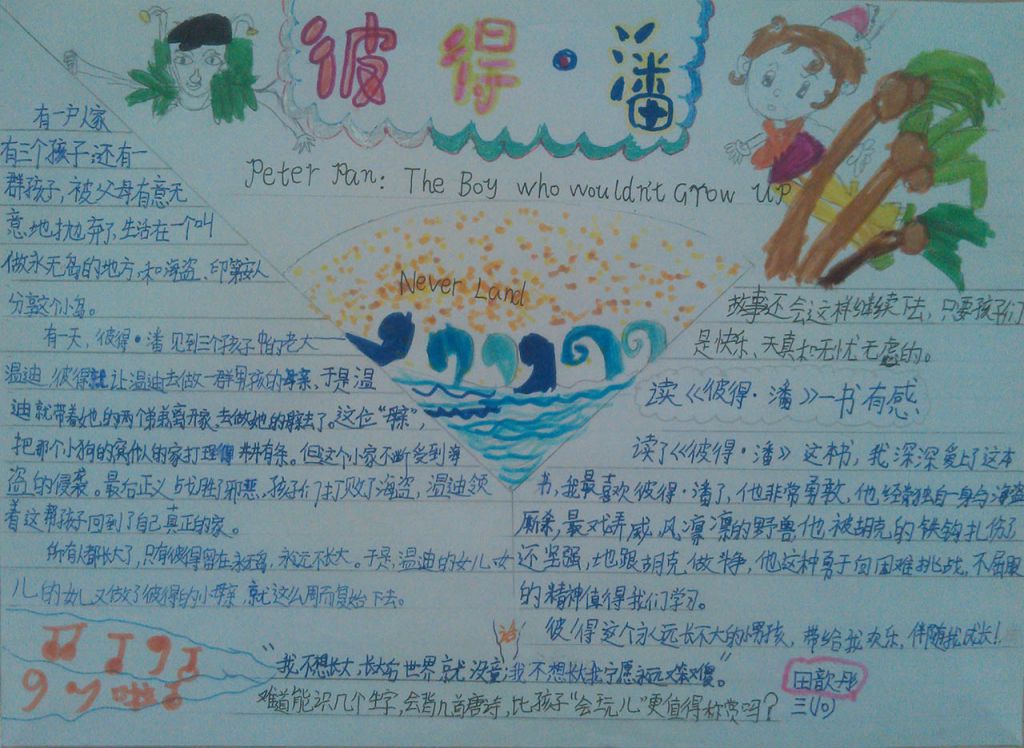 彼得·潘
Peter Pan: The Boy who wouldn't Grow Up
Never Land
有一户人家
有三个孩子;还有一
群孩子,被父母有意无
意地抛弃了,生活在一个叫
做永无岛的地方,和海盗、印第安人
分享这个小岛。
有一天,彼得·潘见到三个孩子中的老大
温迪,彼得就让温迪去做一群男孩的母亲,于是温
迪就带着她的两个弟弟离开家,去做她的母亲去了。这位“母亲”,
把那个小狗的窝似的家打理得井井有条。但这个小家不断受到海
盗的侵袭。最后正义战胜了邪恶,孩子们打败了海盗,温迪领
着这帮孩子回到了自己真正的家。
所有人都长大了,只有彼得留在永无岛,永远不长大。于是,温迪的女儿、女
儿的女儿又做了彼得的小母亲,就这么周而复始下去。
故事还会这样继续下去,只要孩子们
是快乐、天真和无忧无虑的。
读《彼得·潘》一书有感
读了《彼得·潘》这本书,我深深爱上了这本
书,我最喜欢彼得·潘了,他非常勇敢,他经常独自一身与海盗
厮杀,最戏弄威风凛凛的野兽他被胡克的铁钩扎伤了
还坚强地跟胡克做斗争,他这种勇于向困难挑战,不屈服
的精神值得我们学习。
彼得这个永远长不大的男孩,带给我欢乐,伴随我成长!
“我不想长大,长大后世界就没童话我不想长大我宁愿永远又笨又傻。”
难道能识几个生字,会背几首唐诗,比孩子“会玩儿”更值得称赏吗?
田歆彤
三(10)